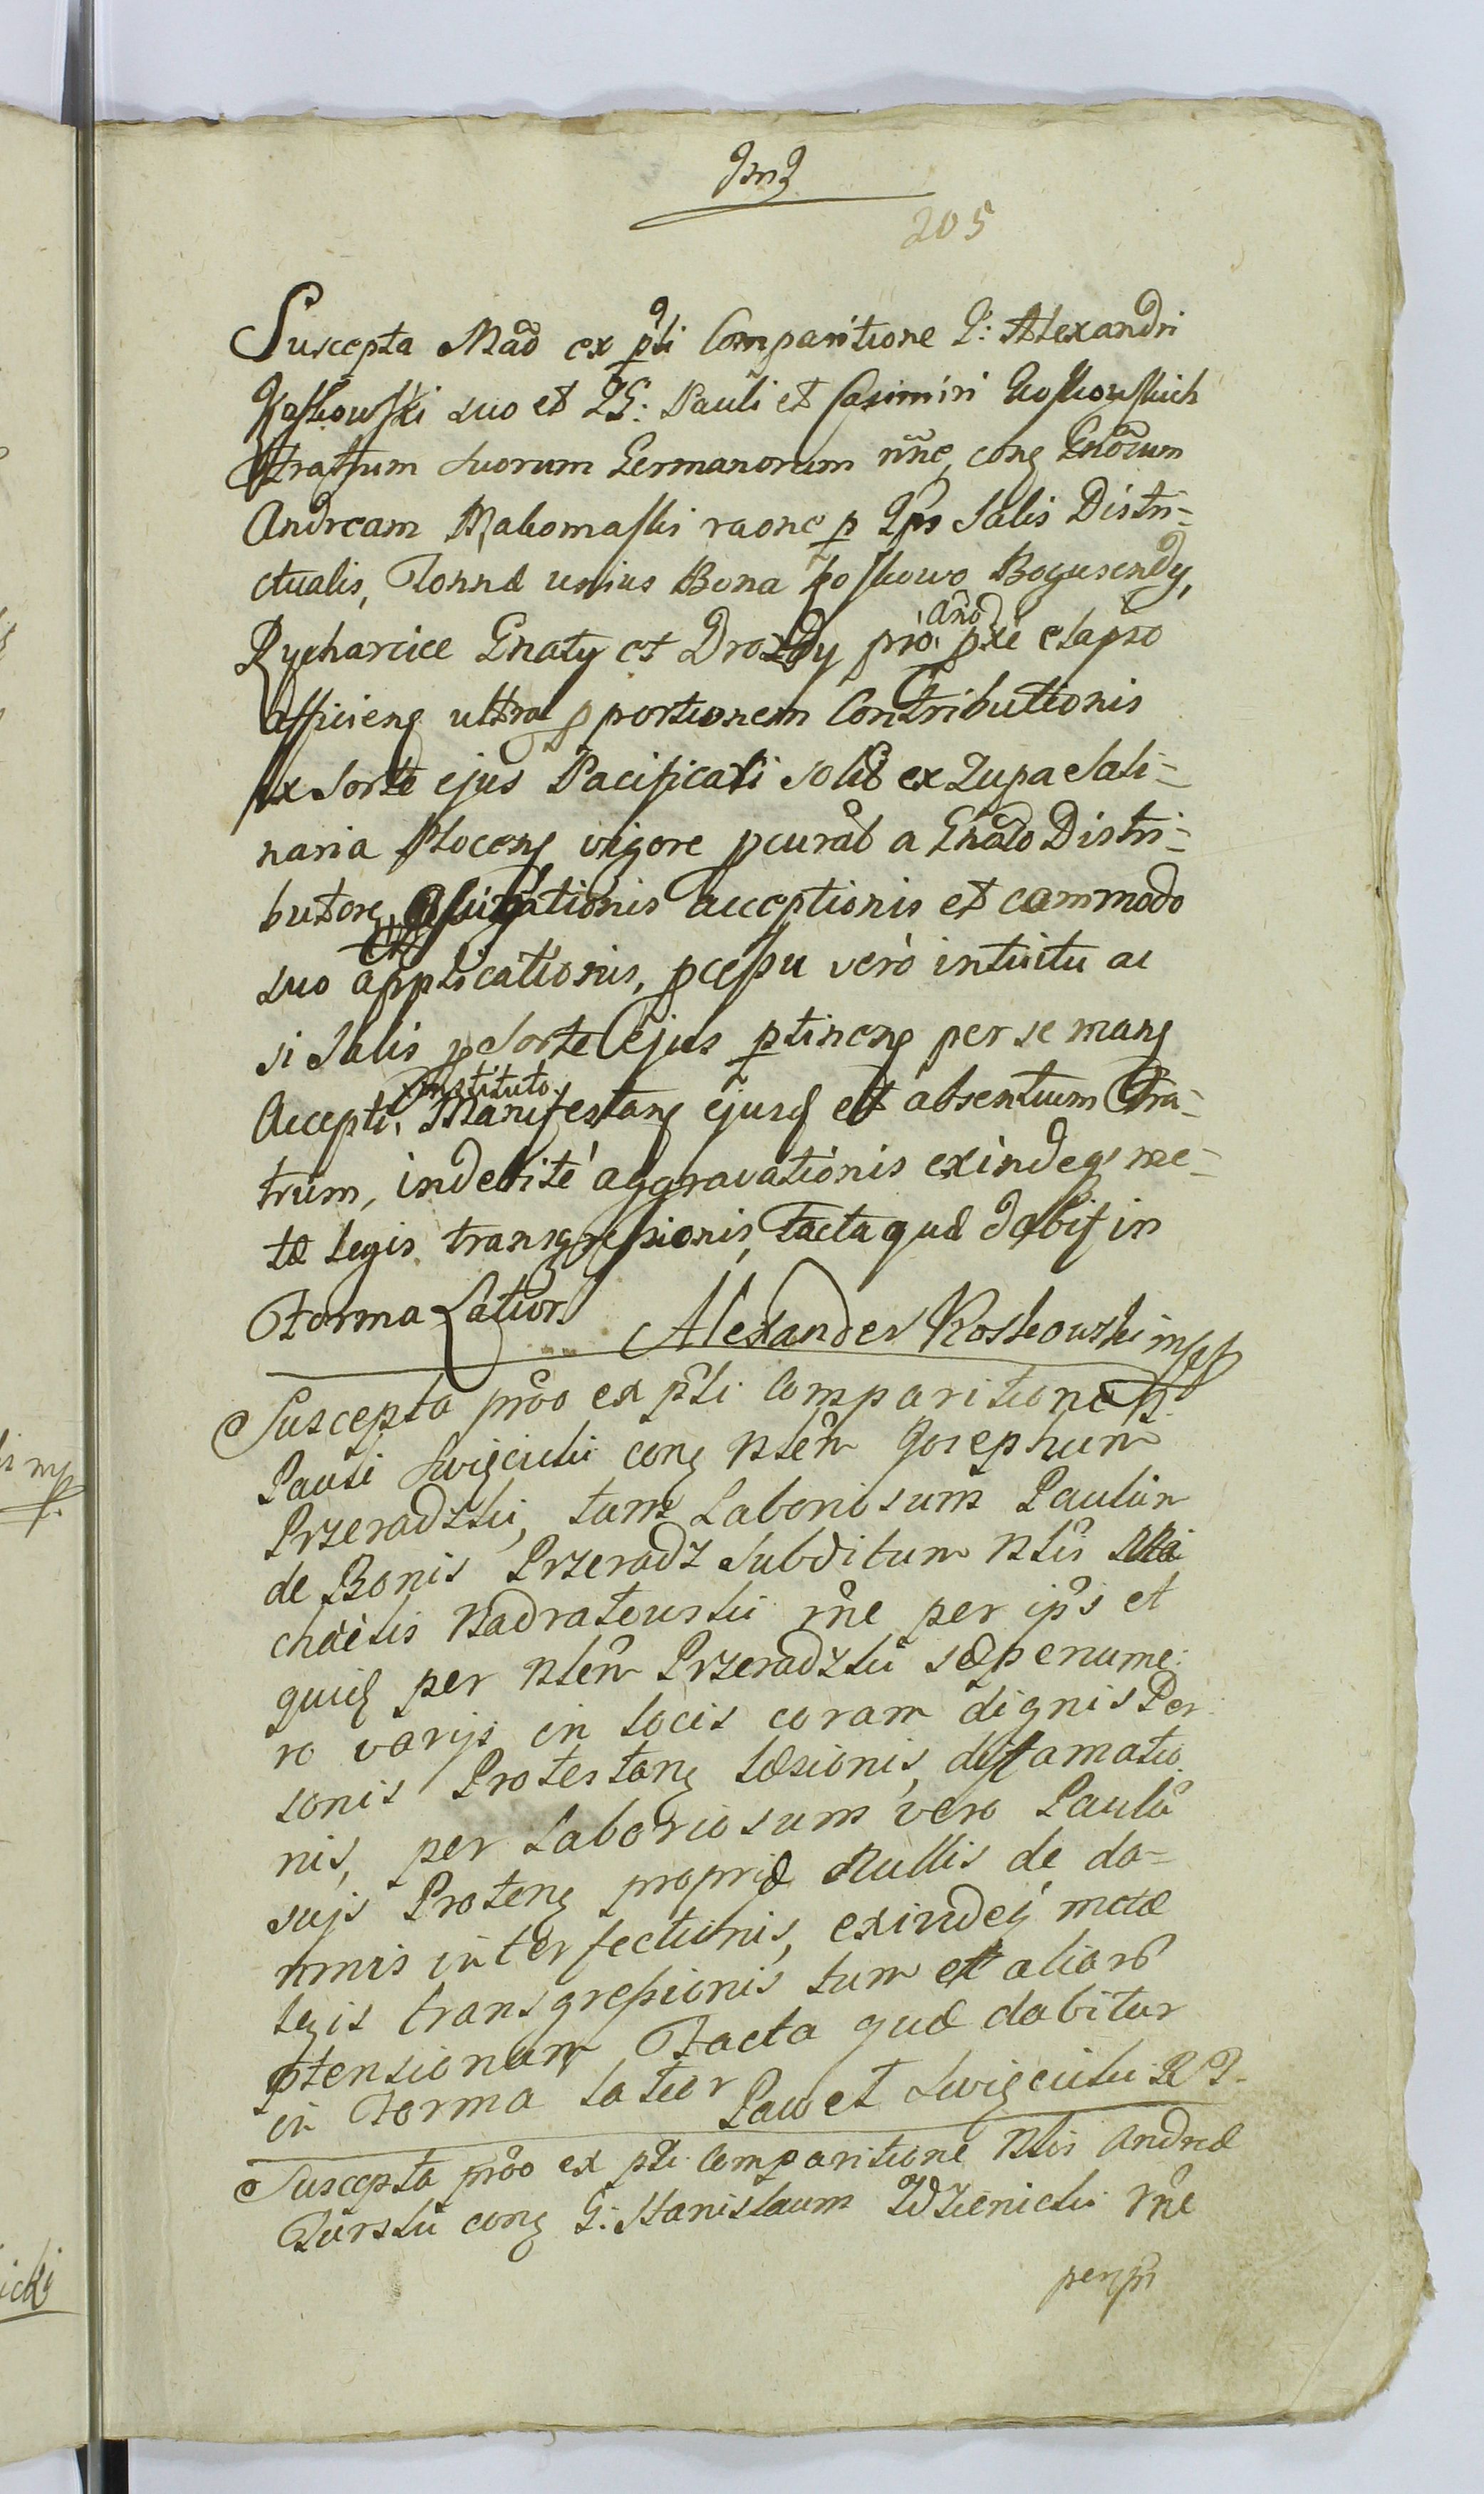 205
Suscepta Mãõ ex pñti Comparitione G: Alexandri
Koskowski suo et GG: Pauli et Casimiri Koskowskich
Fratrum suorum Germanorum nñe, cong Gnõrum
Andream Rakomaski raone p Ips Salis Distri=
ctualis, Tonnæ unius Bona Koskowo Boguséndy,
Rycharcice Gnaty et Drozdy prõ año pxe elapso
afficieng ultra pportionem Contributionis
ex Sorte ejus Pacificati solit ex Zupa Sali=
naria Ploceng vigore pcurat a Gnato Distri=
butore acceptionis et commodo
suo applicationis, pcessu verò intuitu ac
si Salis p Sorte ejus ptineng per se mang
Accepti, instituto Manifestang ejusq et absentium Fra=
trum, indebité aggravationis exindeq me=
tæ legis transgressionis, tacta quæ dabit in
Forma Latior.
Alexander Koskowski mpp
Suscepta prõo ex pñti Comparitione N.
Pauli Swięcicki cong Nlem Josephum
Przeradzki, tum Laboriosum Paulum
de Bonis Przeradz Subditum Nlis Mi
chaelis Nadratowski rñe per ips et
quidq per Nlem Przeradzki sæpenume
ro varijs in locis coram dignis Per
sonis Protestang læsionis, diffamatio
nis, per Laboriosum vero Paulũ
sujs Proteng propriæ Nullis de da=
mnis interfectionis, exindeq metæ
legis transgressionis tum et aliarũ
ptensionum Facta quæ dabitur
in Forma latior
Paweł Swięcicki R P.
Suscepta prõo ex pñti Comparitione Nlis Andreæ
Turski cong G: Stanislaum Zdzienicki rñe
perips